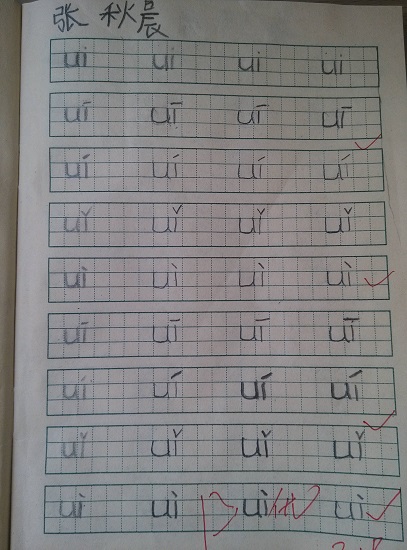 张秋晨
ui ui ui ui
uī uī uī uī
uí uí uí uí
uǐ uǐ uǐ uǐ
uì uì uì uì
uī uī uī uī
uí uí uí uí
uǐ uǐ uǐ uǐ
uì uì uì uì